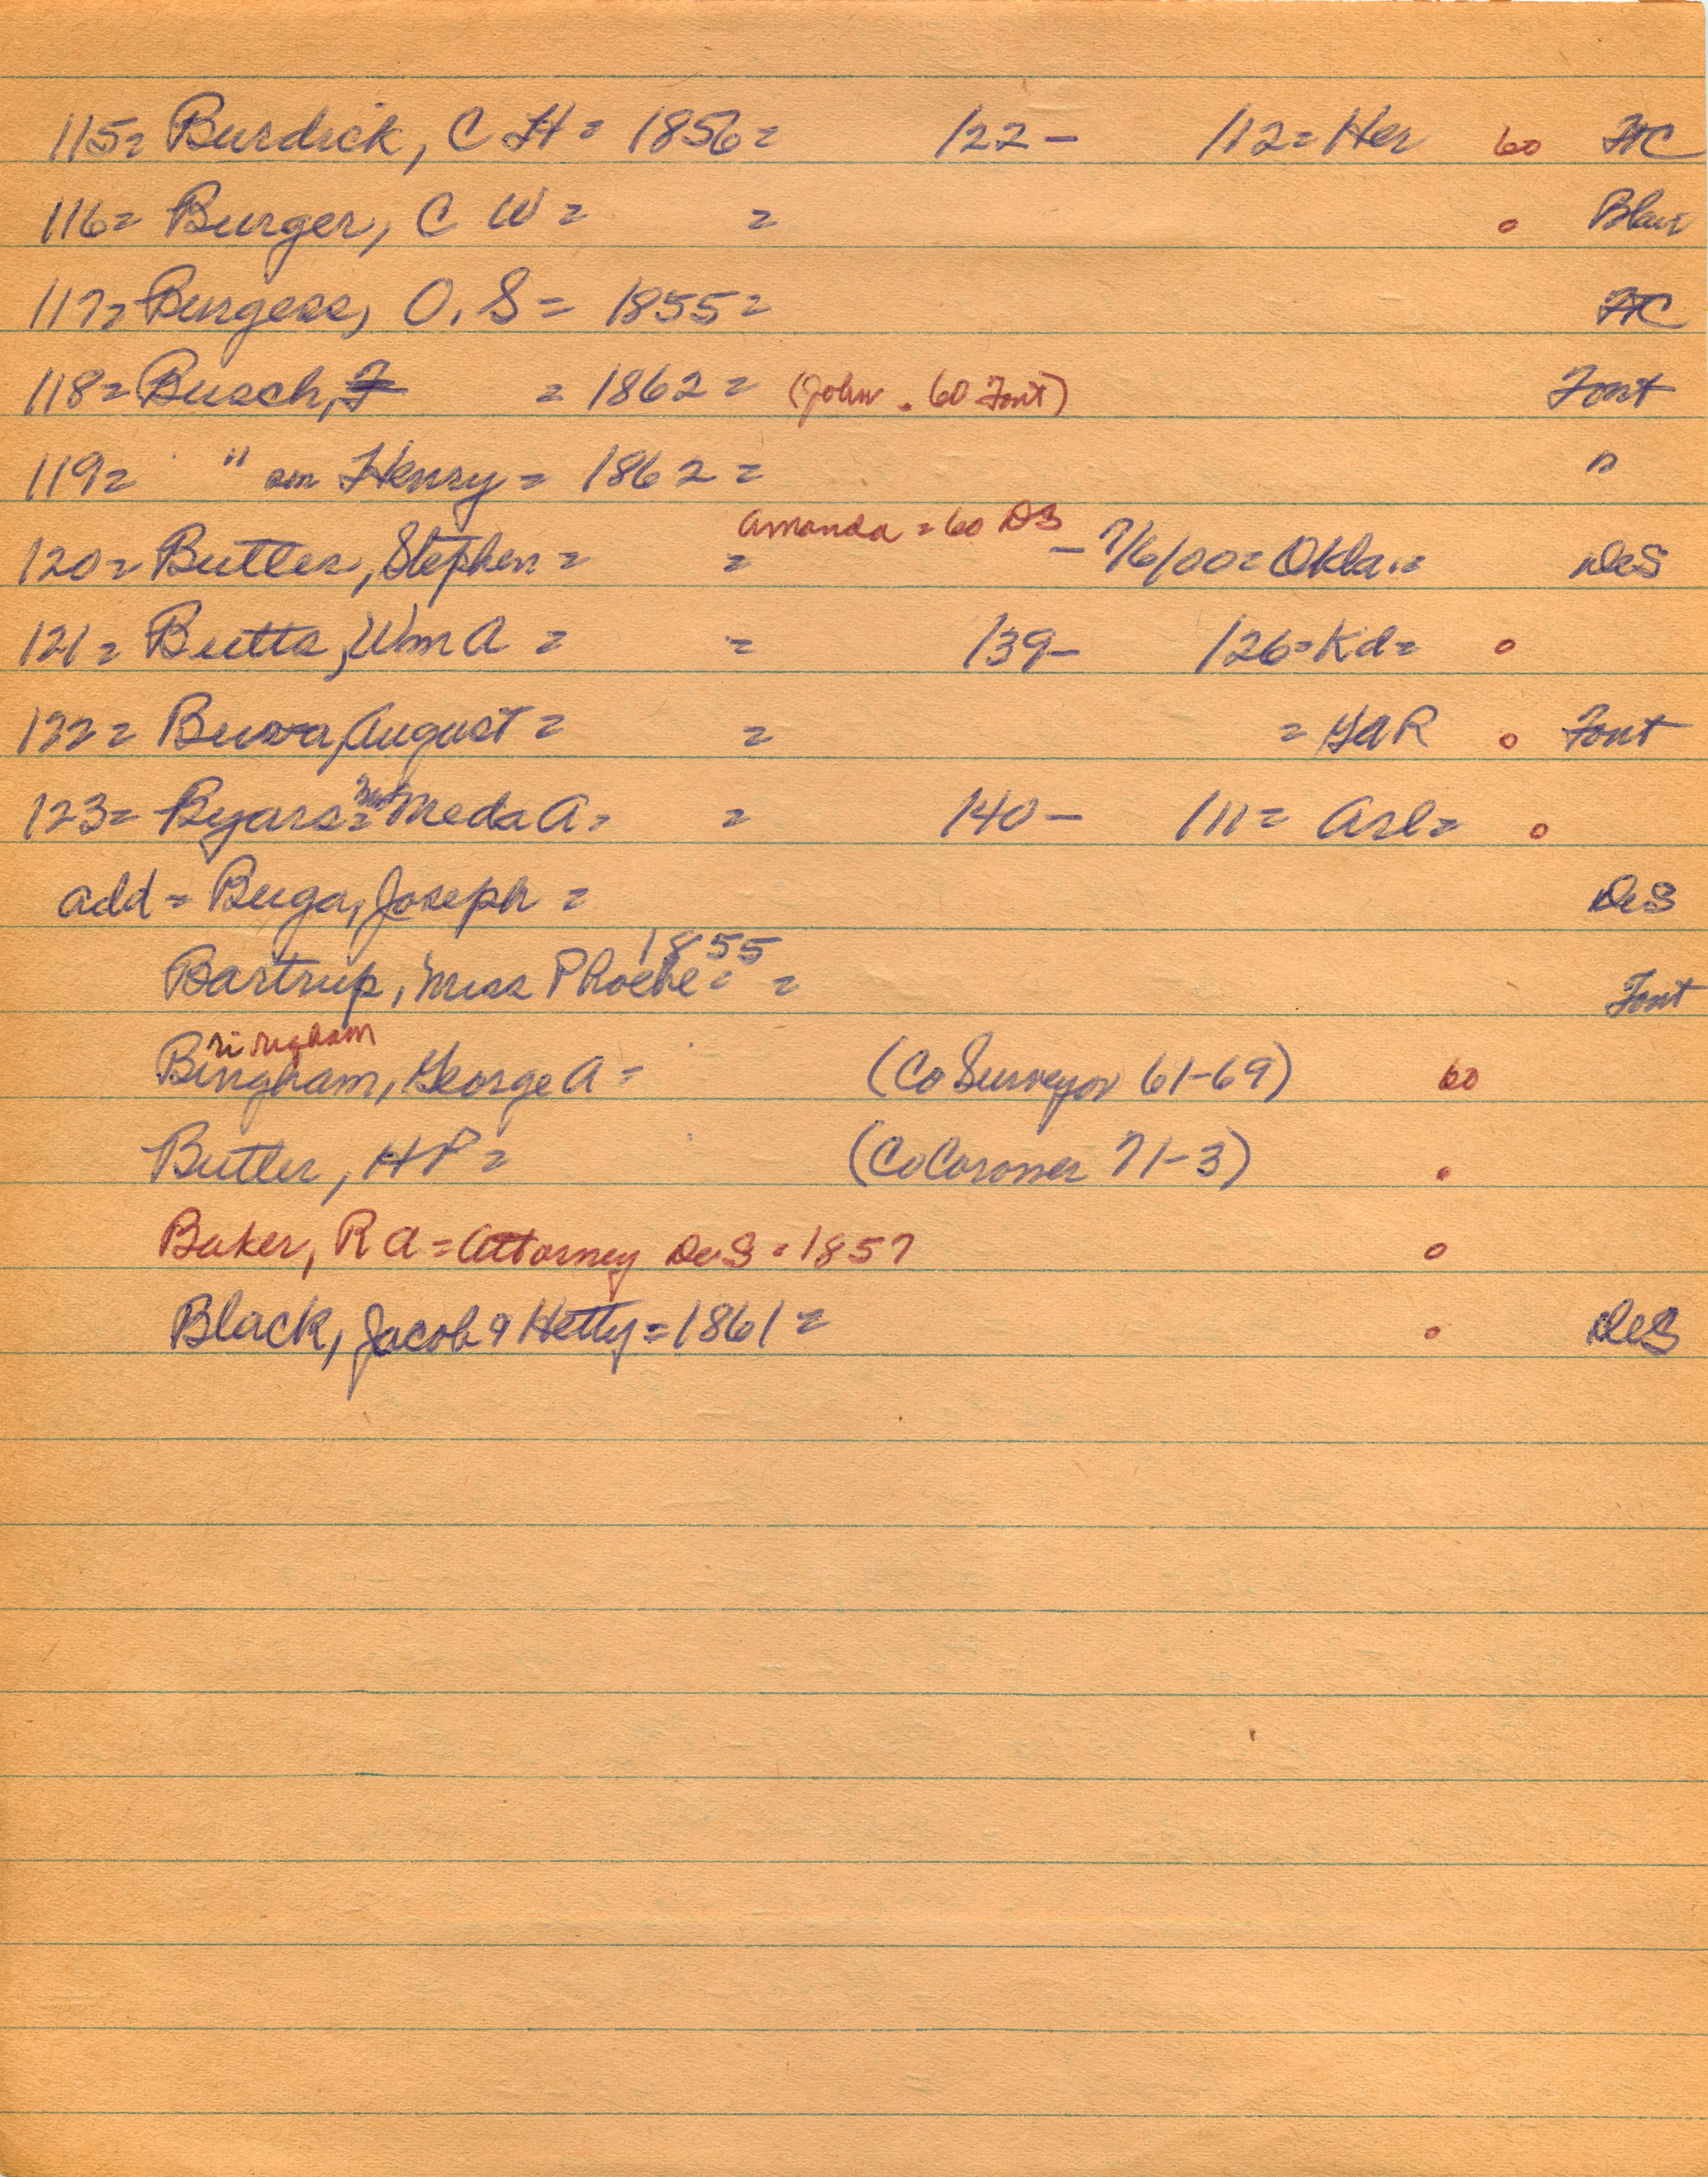 115= Burdick, C H = 1856= 122- 112=Her 60 FtC
116= Burger, C W = = o Blair
117= Burgess, O. S = 1855= FtC
118= Busch, F = 1862 = (John . 60 Font) Font
119= " son Henry = 1862 = "
Amanda = 60 DS
120= Butler, Stephen = = - 7/6/00= Okla.= DeS
121= Butts, Wm A = = 139- 126=Kd= o
122= Buwa, August = = = GAR o Font
123= Byars= Meda A= = 140- 111= Arl= o
add = Buga, Joseph = DeS
1855
Bartrup, Miss Phoebe = = Font
ringham
Bingham, George A = (Co Surveyor 61-69) 60
Butler, HP = (Co Coroner 71-3) .
Baker, R A = Attorney DeS = 1857 o
Black, Jacob & Hetty = 1861 = o DeS